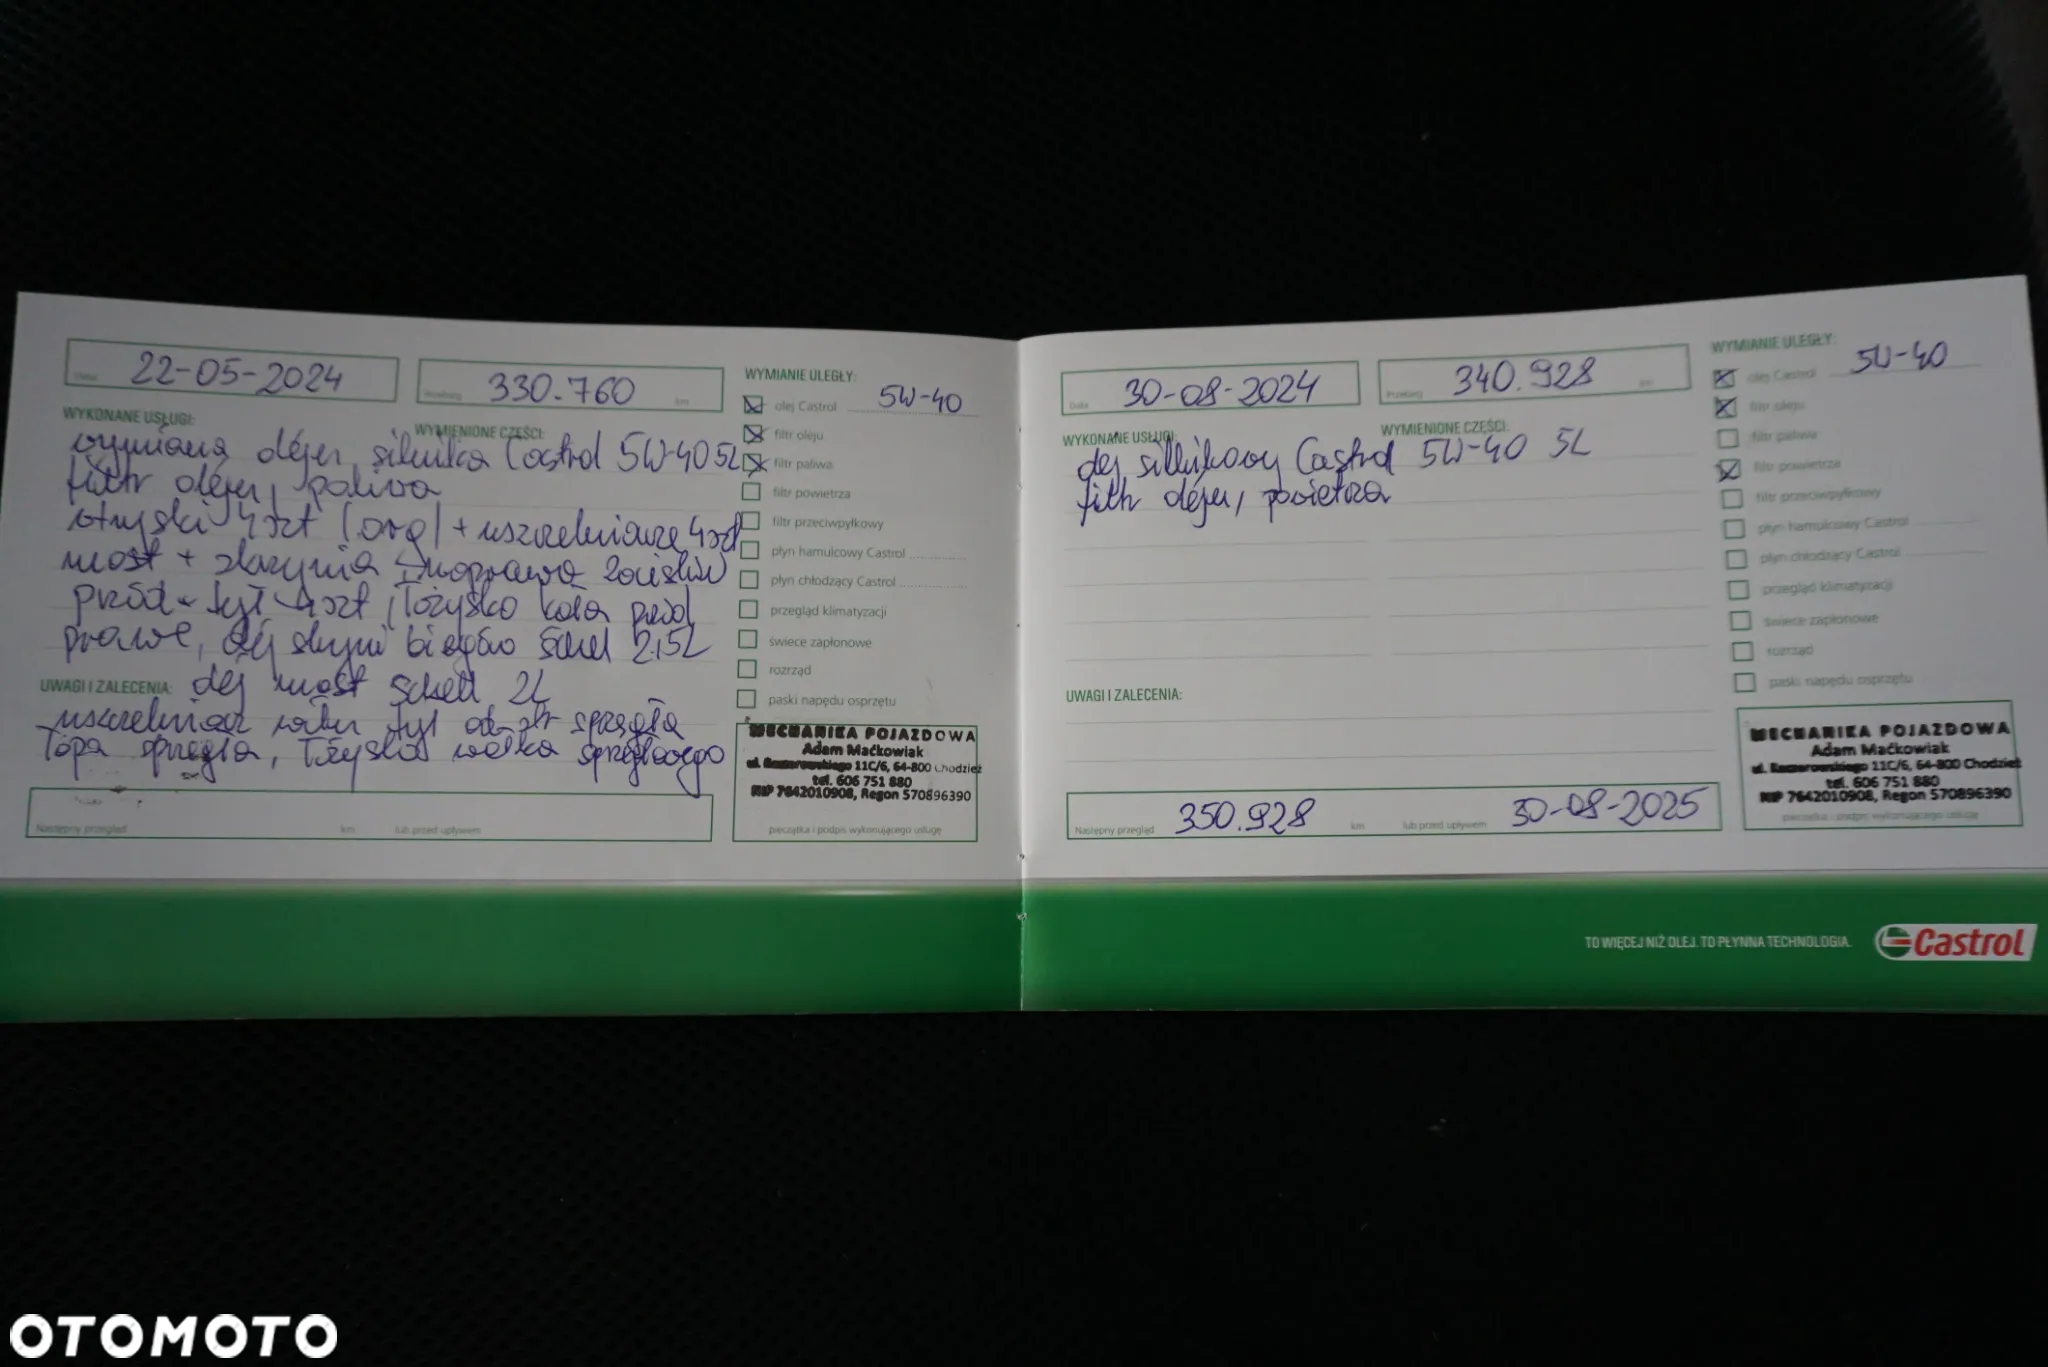 Data 22-05-2024
Przebieg 330.760 km
WYKONANE USŁUGI:
WYMIENIONE CZĘŚCI:
wymiana oleju silnika Castrol 5W-40 5L
filtr oleju, paliwa
wtryski 4szt (org) + uszczelniacze 4szt
most + skrzynia, naprawa zacisków
przód - tył 4szt, łożysko koła przód
prawe, olej skrzyni biegów Shell 2,5L
UWAGI I ZALECENIA:
olej most Shell 2L
uszczelniacz wału tył od str sprzęgła
łapa sprzęgła, łożysko wałka sprzęgłowego
Następny przegląd km lub przed upływem
WYMIANIE ULEGŁY:
olej Castrol 5W-40
filtr oleju
filtr paliwa
filtr powietrza
filtr przeciwpyłkowy
płyn hamulcowy Castrol
płyn chłodzący Castrol
przegląd klimatyzacji
świece zapłonowe
rozrząd
paski napędu osprzętu
MECHANIKA POJAZDOWA
Adam Maćkowiak
ul. 11C/6, 64-800 Chodzież
tel. 606 751 880
NIP 7642010908, Regon 570896390
pieczątka i podpis wykonującego usługę
Data 30-08-2024
Przebieg 340.928 km
WYKONANE USŁUGI:
WYMIENIONE CZĘŚCI:
olej silnikowy Castrol 5W-40 5L
filtr oleju, powietrza
UWAGI I ZALECENIA:
Następny przegląd 350.928 km lub przed upływem 30-08-2025
WYMIANIE ULEGŁY:
olej Castrol 5W-40
filtr oleju
filtr paliwa
filtr powietrza
filtr przeciwpyłkowy
płyn hamulcowy Castrol
płyn chłodzący Castrol
przegląd klimatyzacji
świece zapłonowe
rozrząd
paski napędu osprzętu
MECHANIKA POJAZDOWA
Adam Maćkowiak
ul. 11C/6, 64-800 Chodzież
tel. 606 751 880
NIP 7642010908, Regon 570896390
pieczątka i podpis wykonującego usługę
TO WIĘCEJ NIŻ OLEJ. TO PŁYNNA TECHNOLOGIA.
Castrol
OTOMOTO